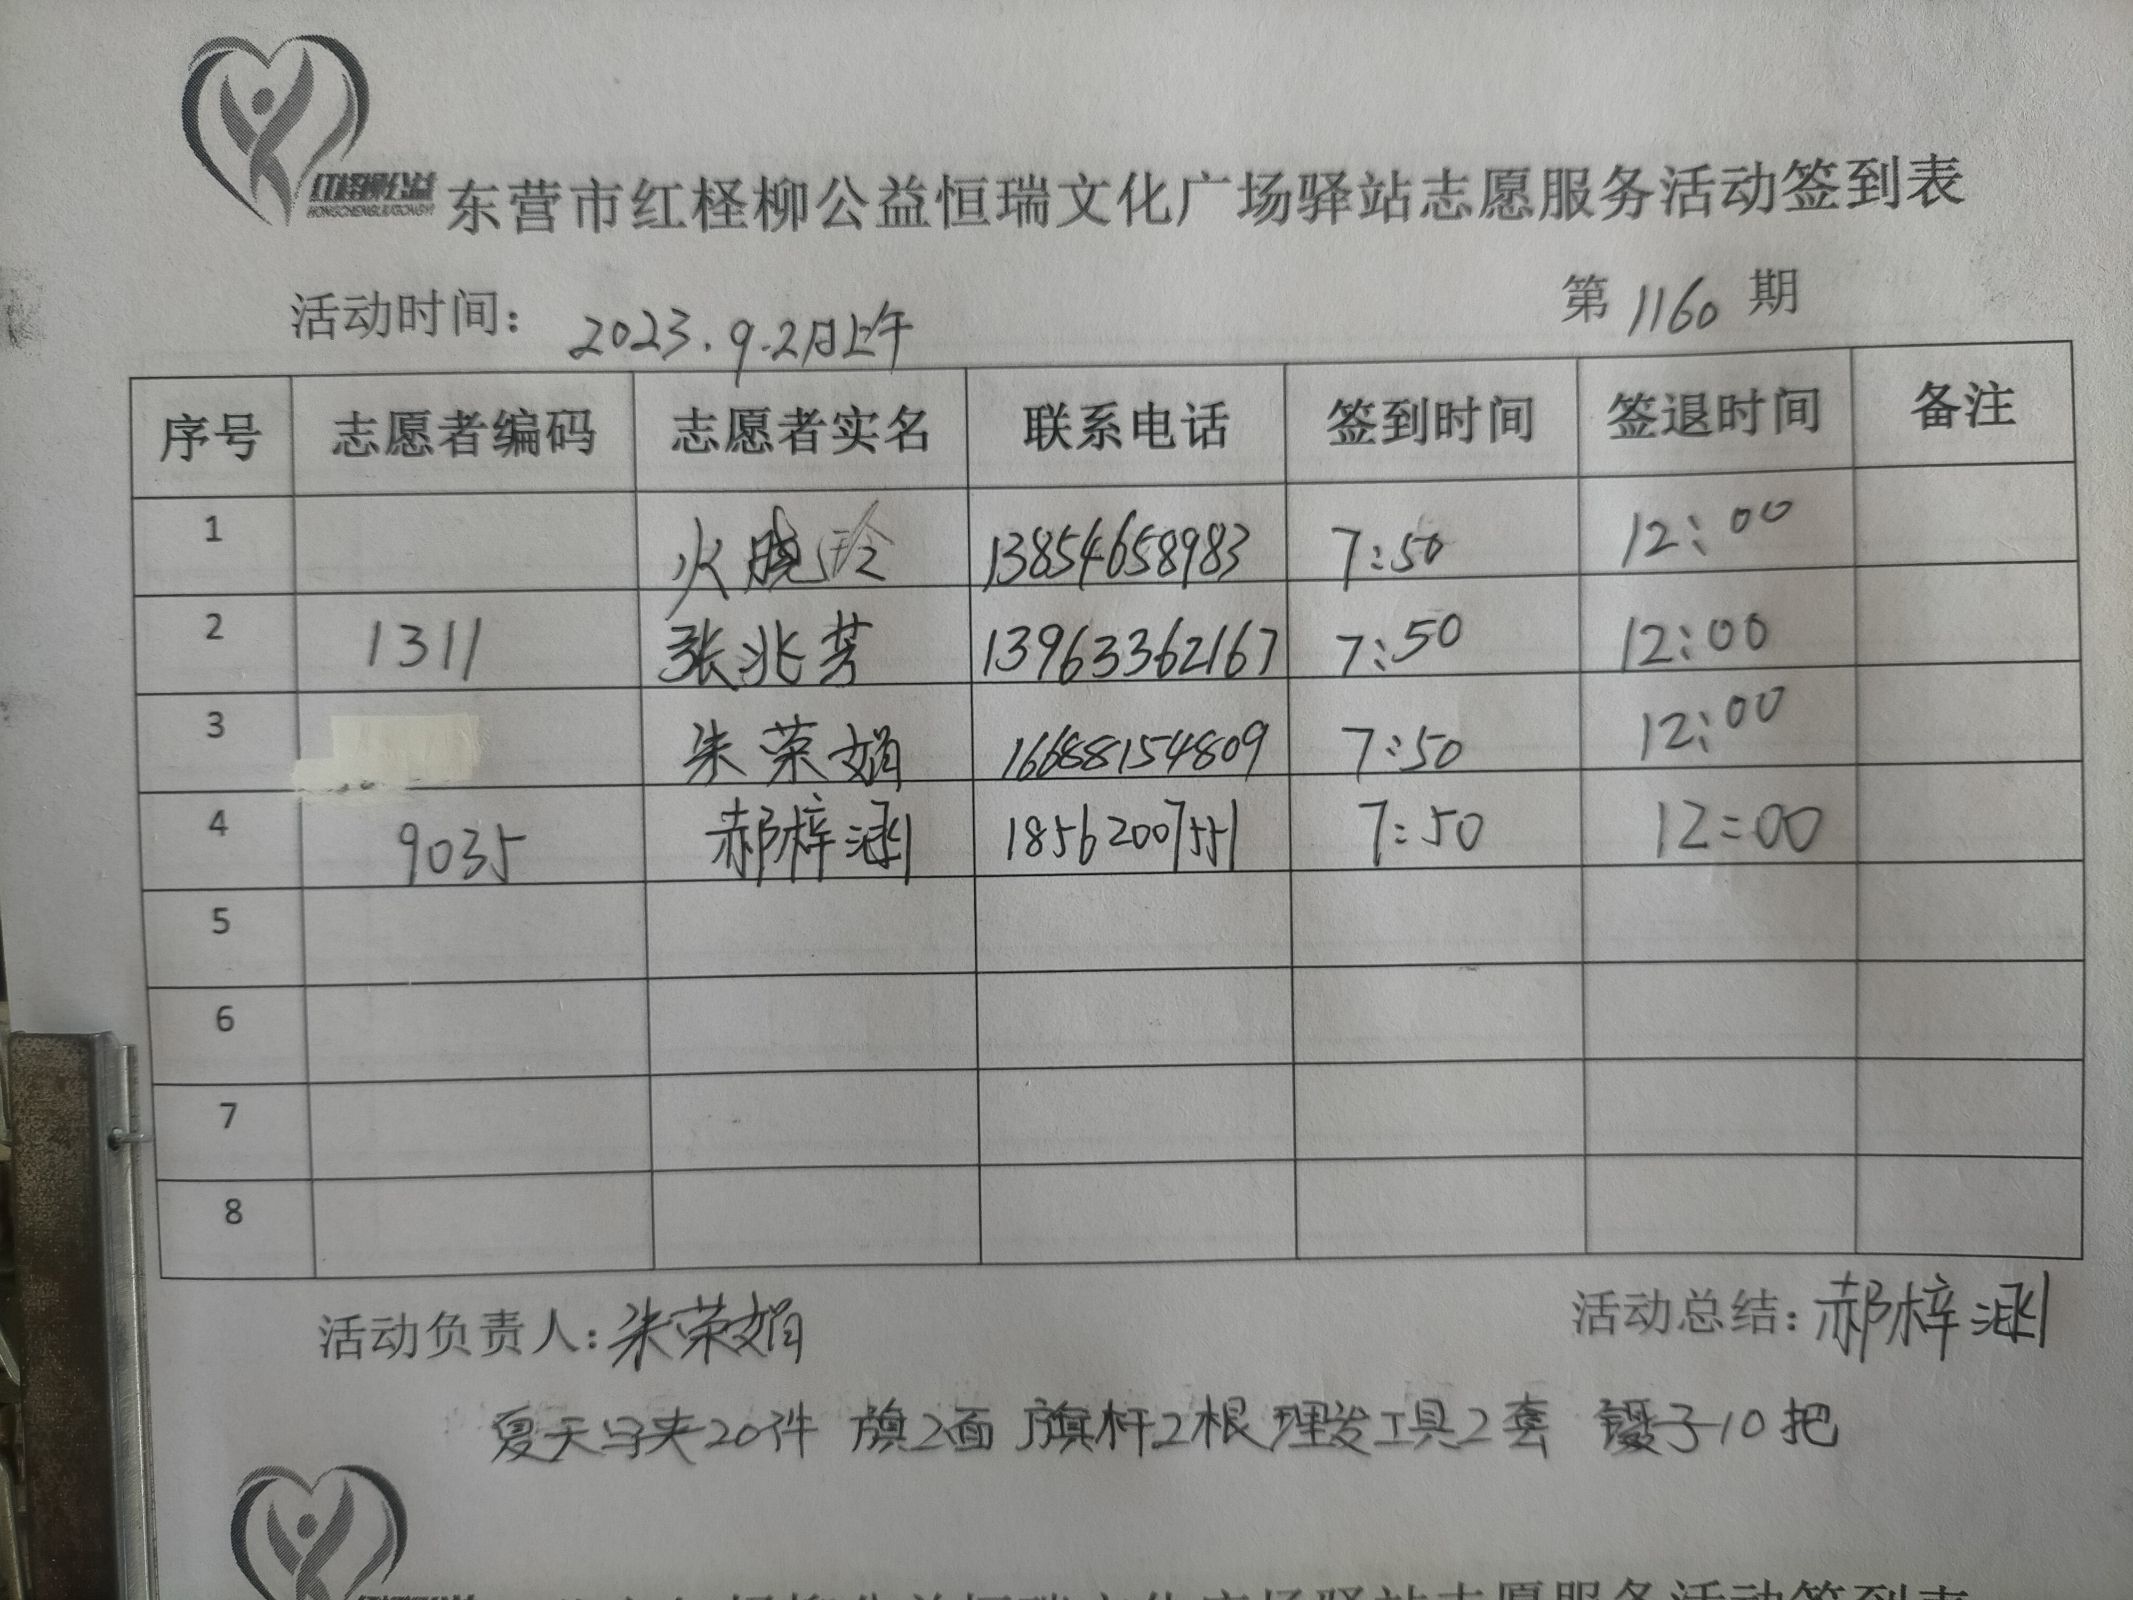 红柽柳公益
HONGCHENGLIUGONGYI
东营市红柽柳公益恒瑞文化广场驿站志愿服务活动签到表
活动时间： 2023.9.2日上午 第 1160 期
序号 志愿者编码 志愿者实名 联系电话 签到时间 签退时间 备注
1 火晓玲 13854658983 7:50 12:00
2 1311 张兆芳 13963362167 7:50 12:00
3 朱荣娟 16688154809 7:50 12:00
4 9035 郝梓涵 18562007551 7:50 12:00
5
6
7
8
活动负责人：朱荣娟 活动总结：郝梓涵
夏天马夹20件 旗2面 旗杆2根 理发工具2套 镊子10把
志愿服务活动签到表